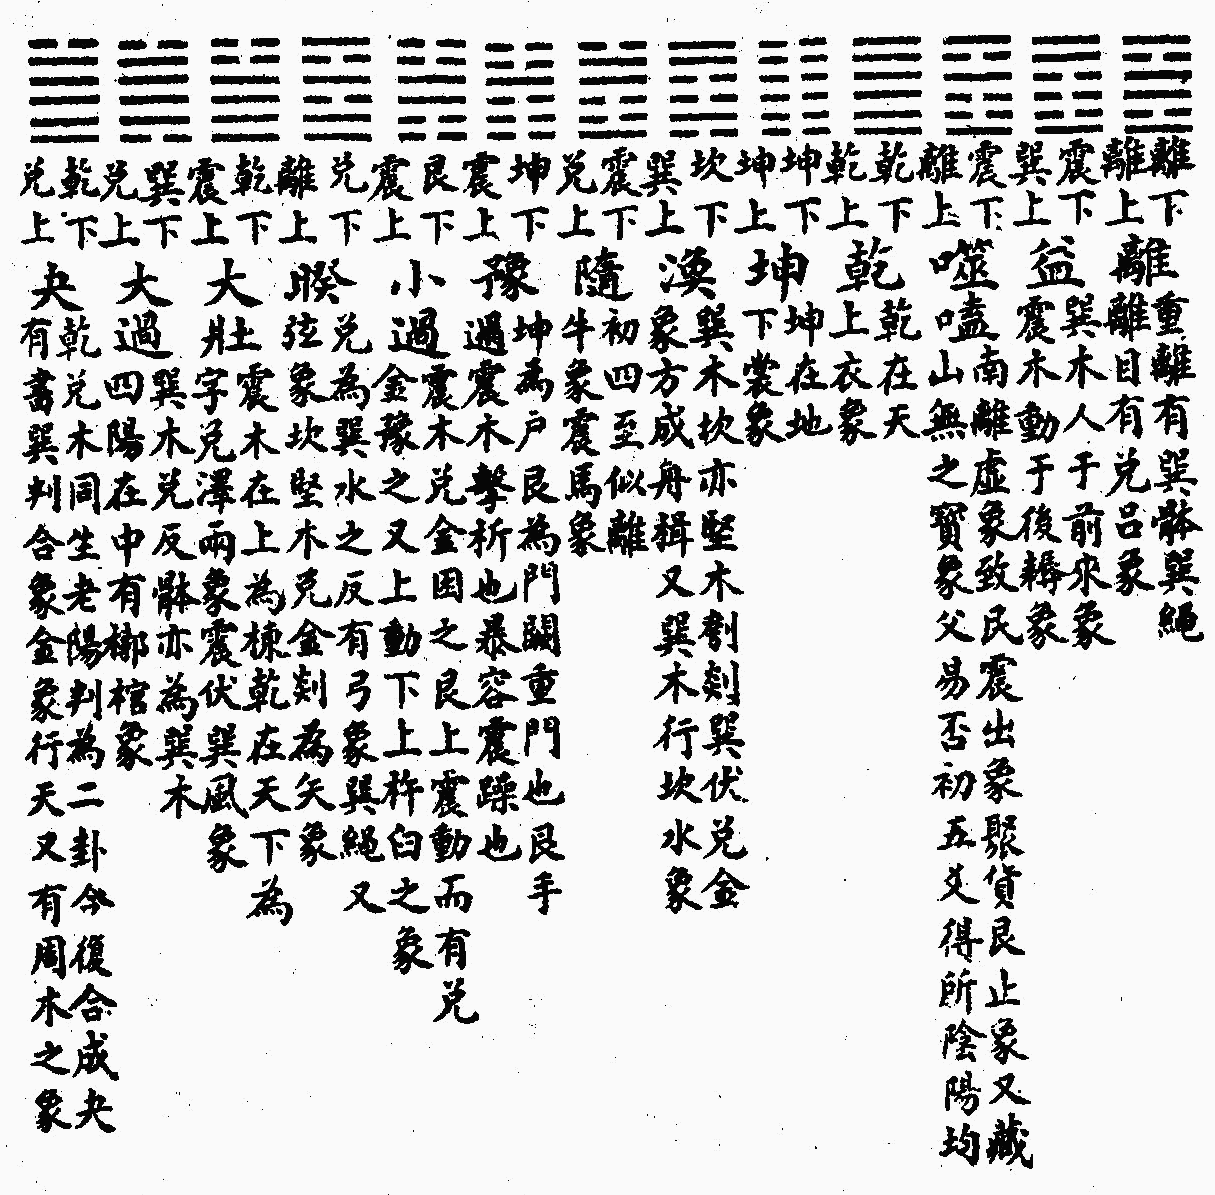 離下
離上
離
重離有巽骵巽繩
離目有兌呂象
震下
巽上
益
巽木人于前來象
震木動于後耨象
震下
離上
噬嗑
南離虛象致民震出象聚貨艮止象又藏
山無之寶象父易否初五爻得所陰陽均
乾下
乾上
乾
乾在天
上衣象
坤下
坤上
坤
坤在地
下裳象
坎下
巽上
渙
巽木坎亦堅木刳剡巽伏兌金
象方成舟楫又巽木行坎水象
震下
兌上
隨
初四至似離
牛象震馬象
坤下
震上
豫
坤為戶艮為門闢重門也艮手
過震木擊柝也暴容震躁也
艮下
震上
小過
震木兌金因之艮上震動而有兌
金豫之又上動下上杵臼之象
兌下
離上
睽
兌為巽水之反有弓象巽繩又
弦象坎堅木兌金剡為矢象
乾下
震上
大壯
震木在上為棟乾在天下為
字兌澤雨象震伏巽風象
巽下
兌上
大過
巽木兌反骵亦為巽木
四陽在中有槨棺象
乾下
兌上
夬
乾兌木同生老陽判為二卦今復合成夬
有書巽判合象金象行天又有周木之象